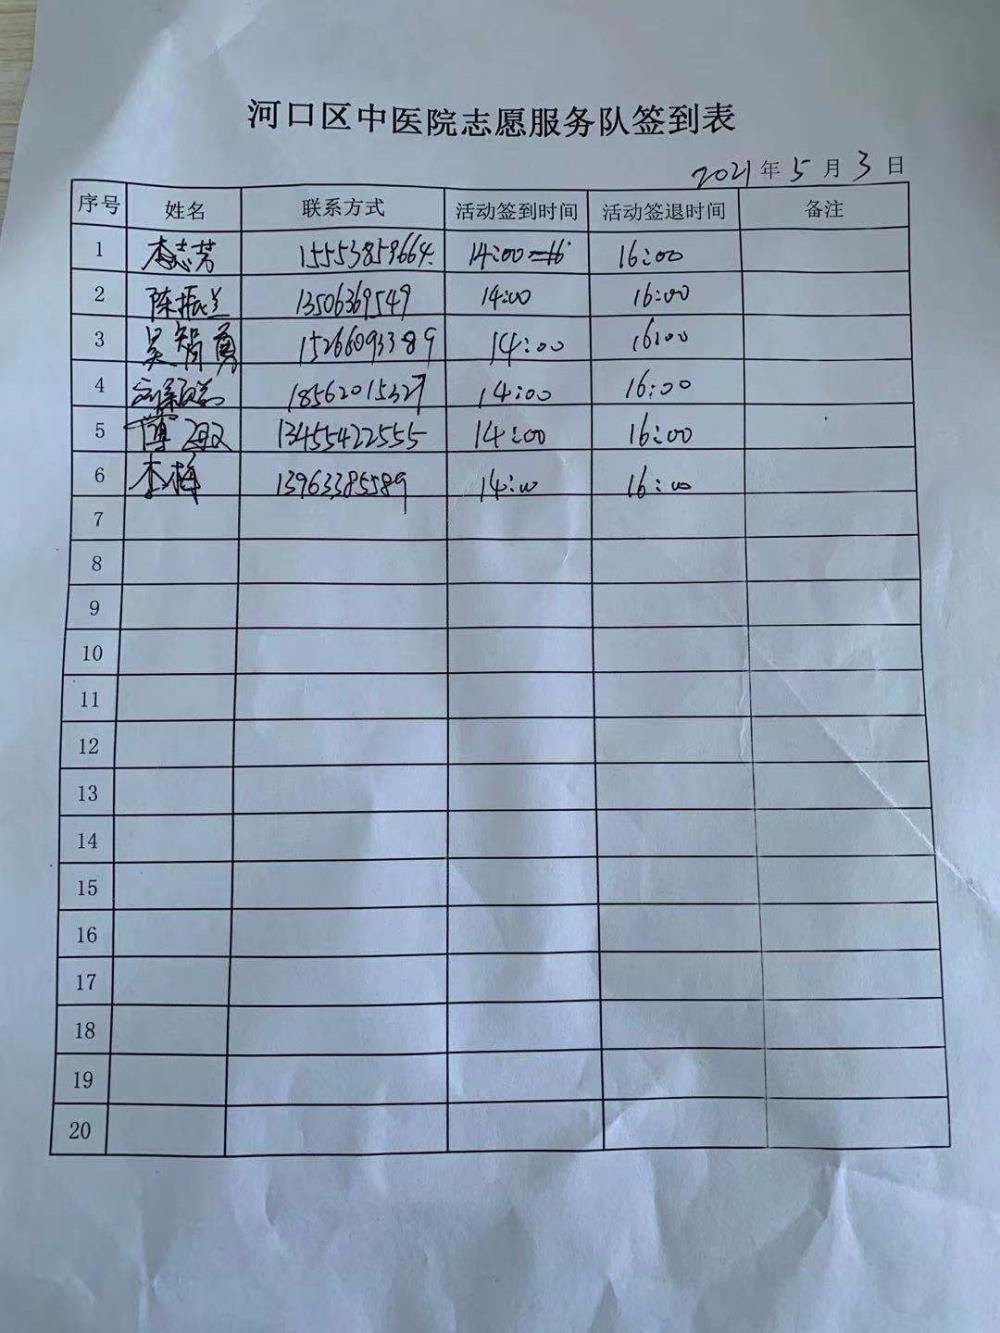 河口区中医院志愿服务队签到表
2021年5月3日
序号 姓名 联系方式 活动签到时间 活动签退时间 备注
1 李志芳 15553859664. 14:00 16:00
2 陈振兰 13506369549 14:00 16:00
3 吴智勇 15266093389 14:00 16:00
4 18562015327 14:00 16:00
5 薄 13455422555 14:00 16:00
6 李梅 13963385589 14:00 16:00
7
8
9
10
11
12
13
14
15
16
17
18
19
20